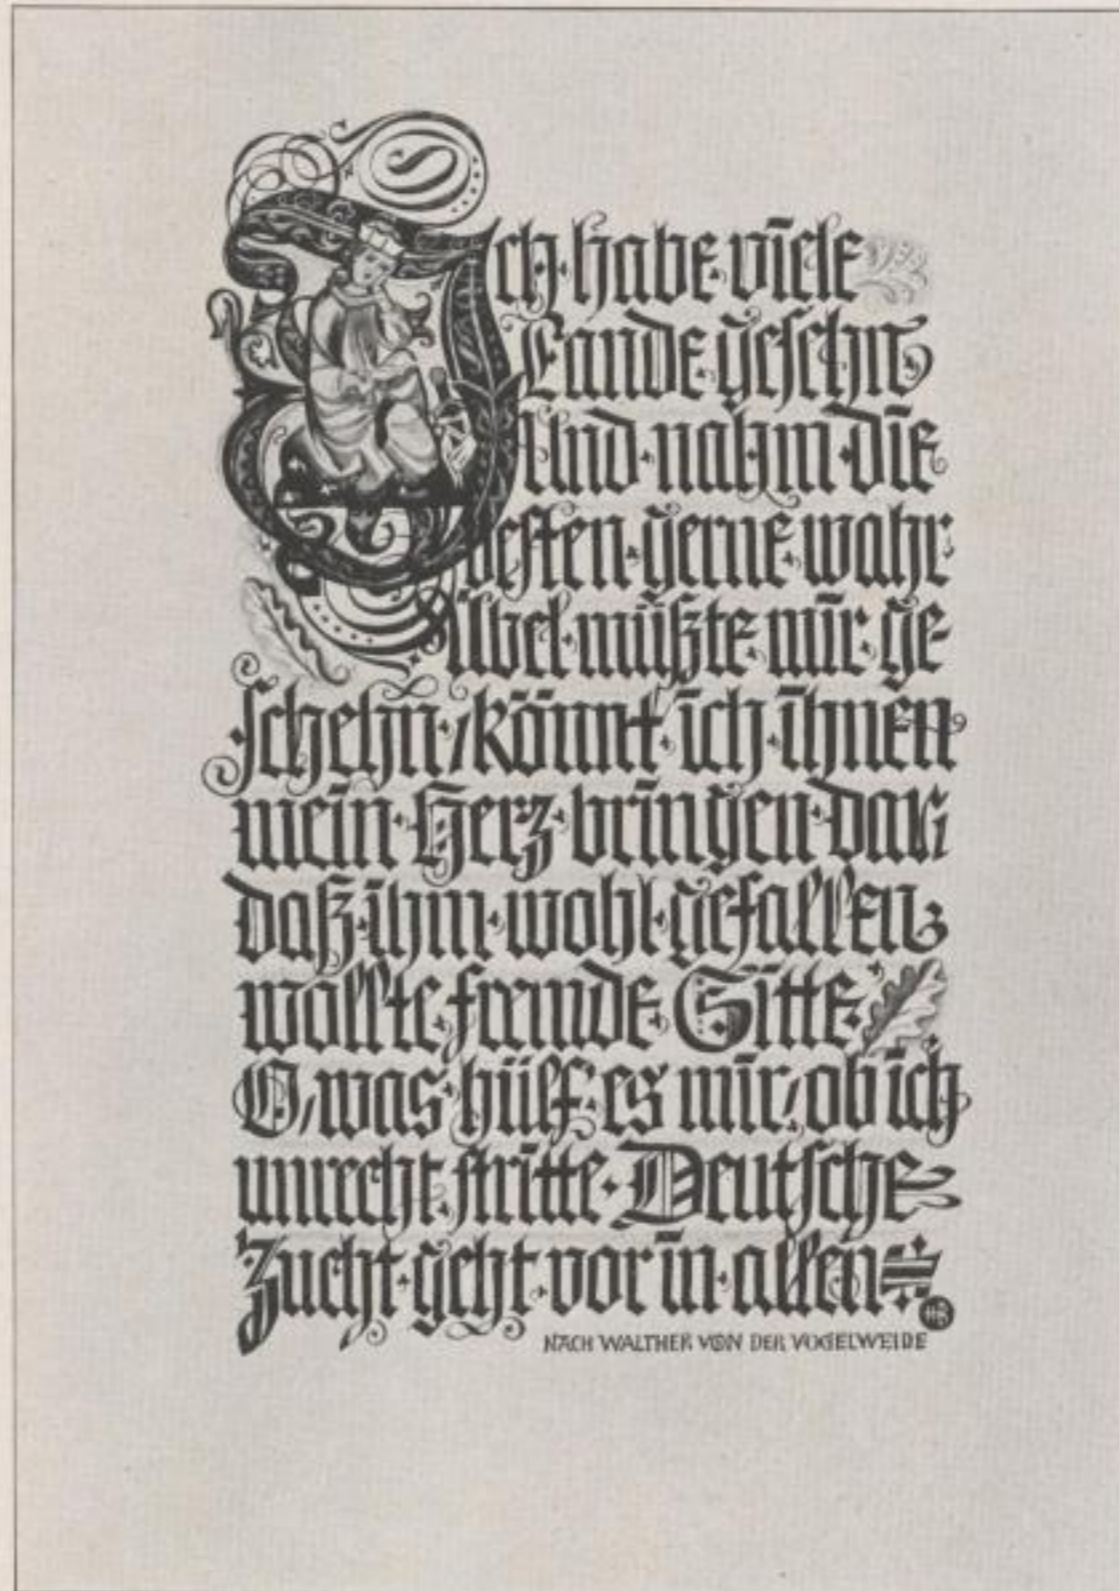 Ich habe viele
Lande gesehn
Und nahm die
besten gerne wahr
Übel müßte mir ge-
schehn / könnt ich ihnen
mein Herz bringen dar
daß ihm wohl gefallen
wollte fremde Sitte
O, was hülf es mir / ob ich
unrecht stritte Deutsche
Zucht geht vor in allen
HB
NACH WALTHER VON DER VOGELWEIDE